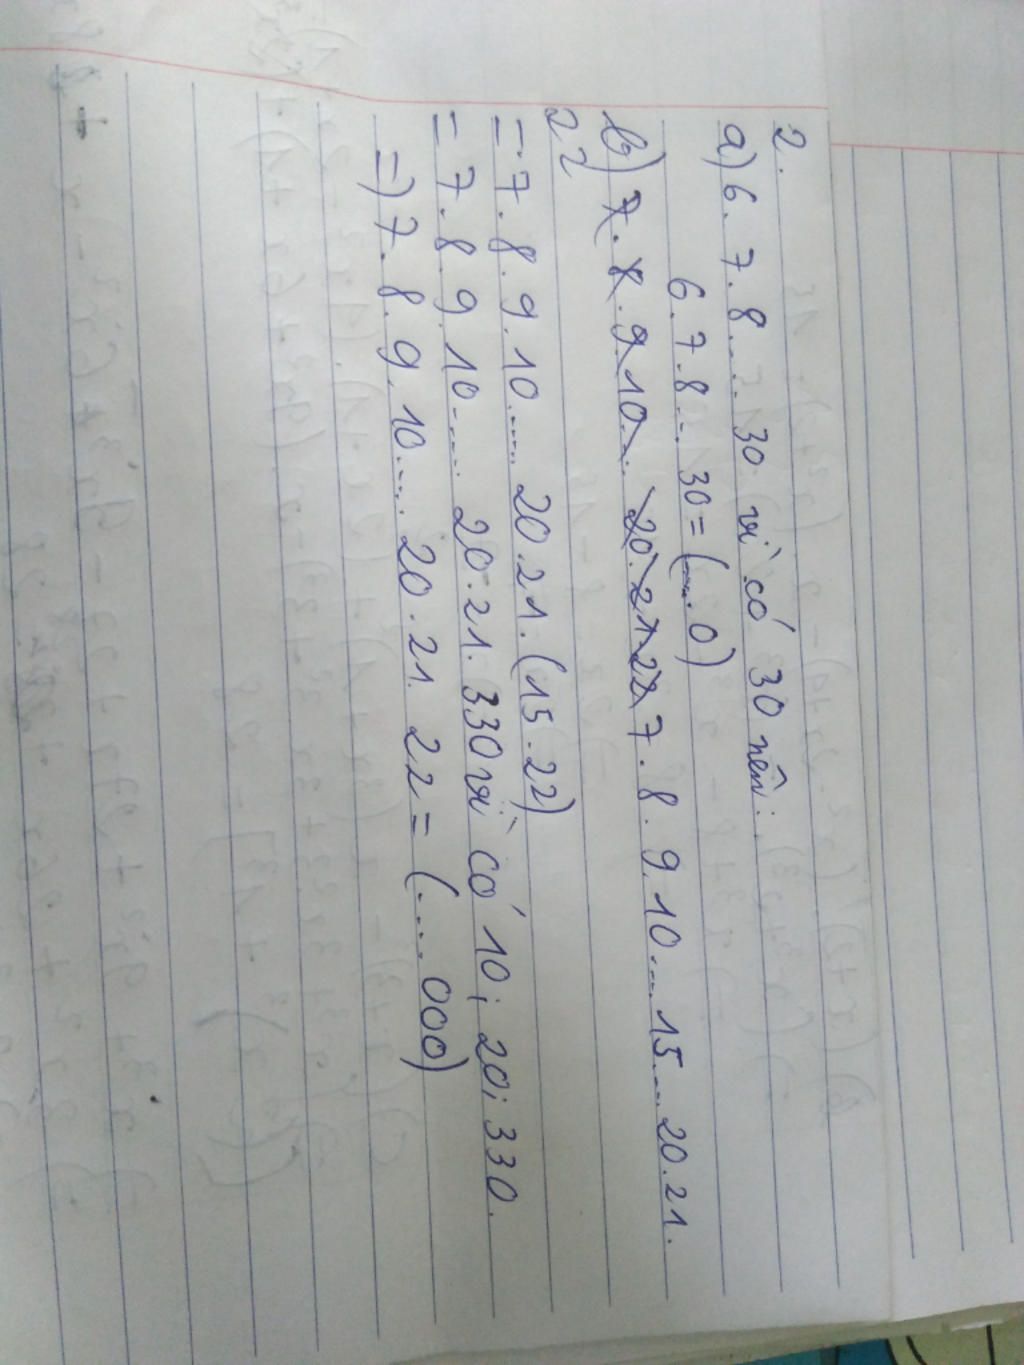 2.
a) 6. 7. 8.... 30 vì có 30 nên:
6. 7. 8... 30 = (.... 0)
b) 7. 8. 9. 10... 20. 21. 22 7. 8. 9. 10.... 15.... 20. 21.
22
= 7. 8. 9. 10..... 20. 21. (15. 22)
= 7. 8. 9. 10..... 20. 21. 330 vì có 10; 20; 330.
=) 7. 8. 9. 10.... 20. 21. 22 = (.... 000)